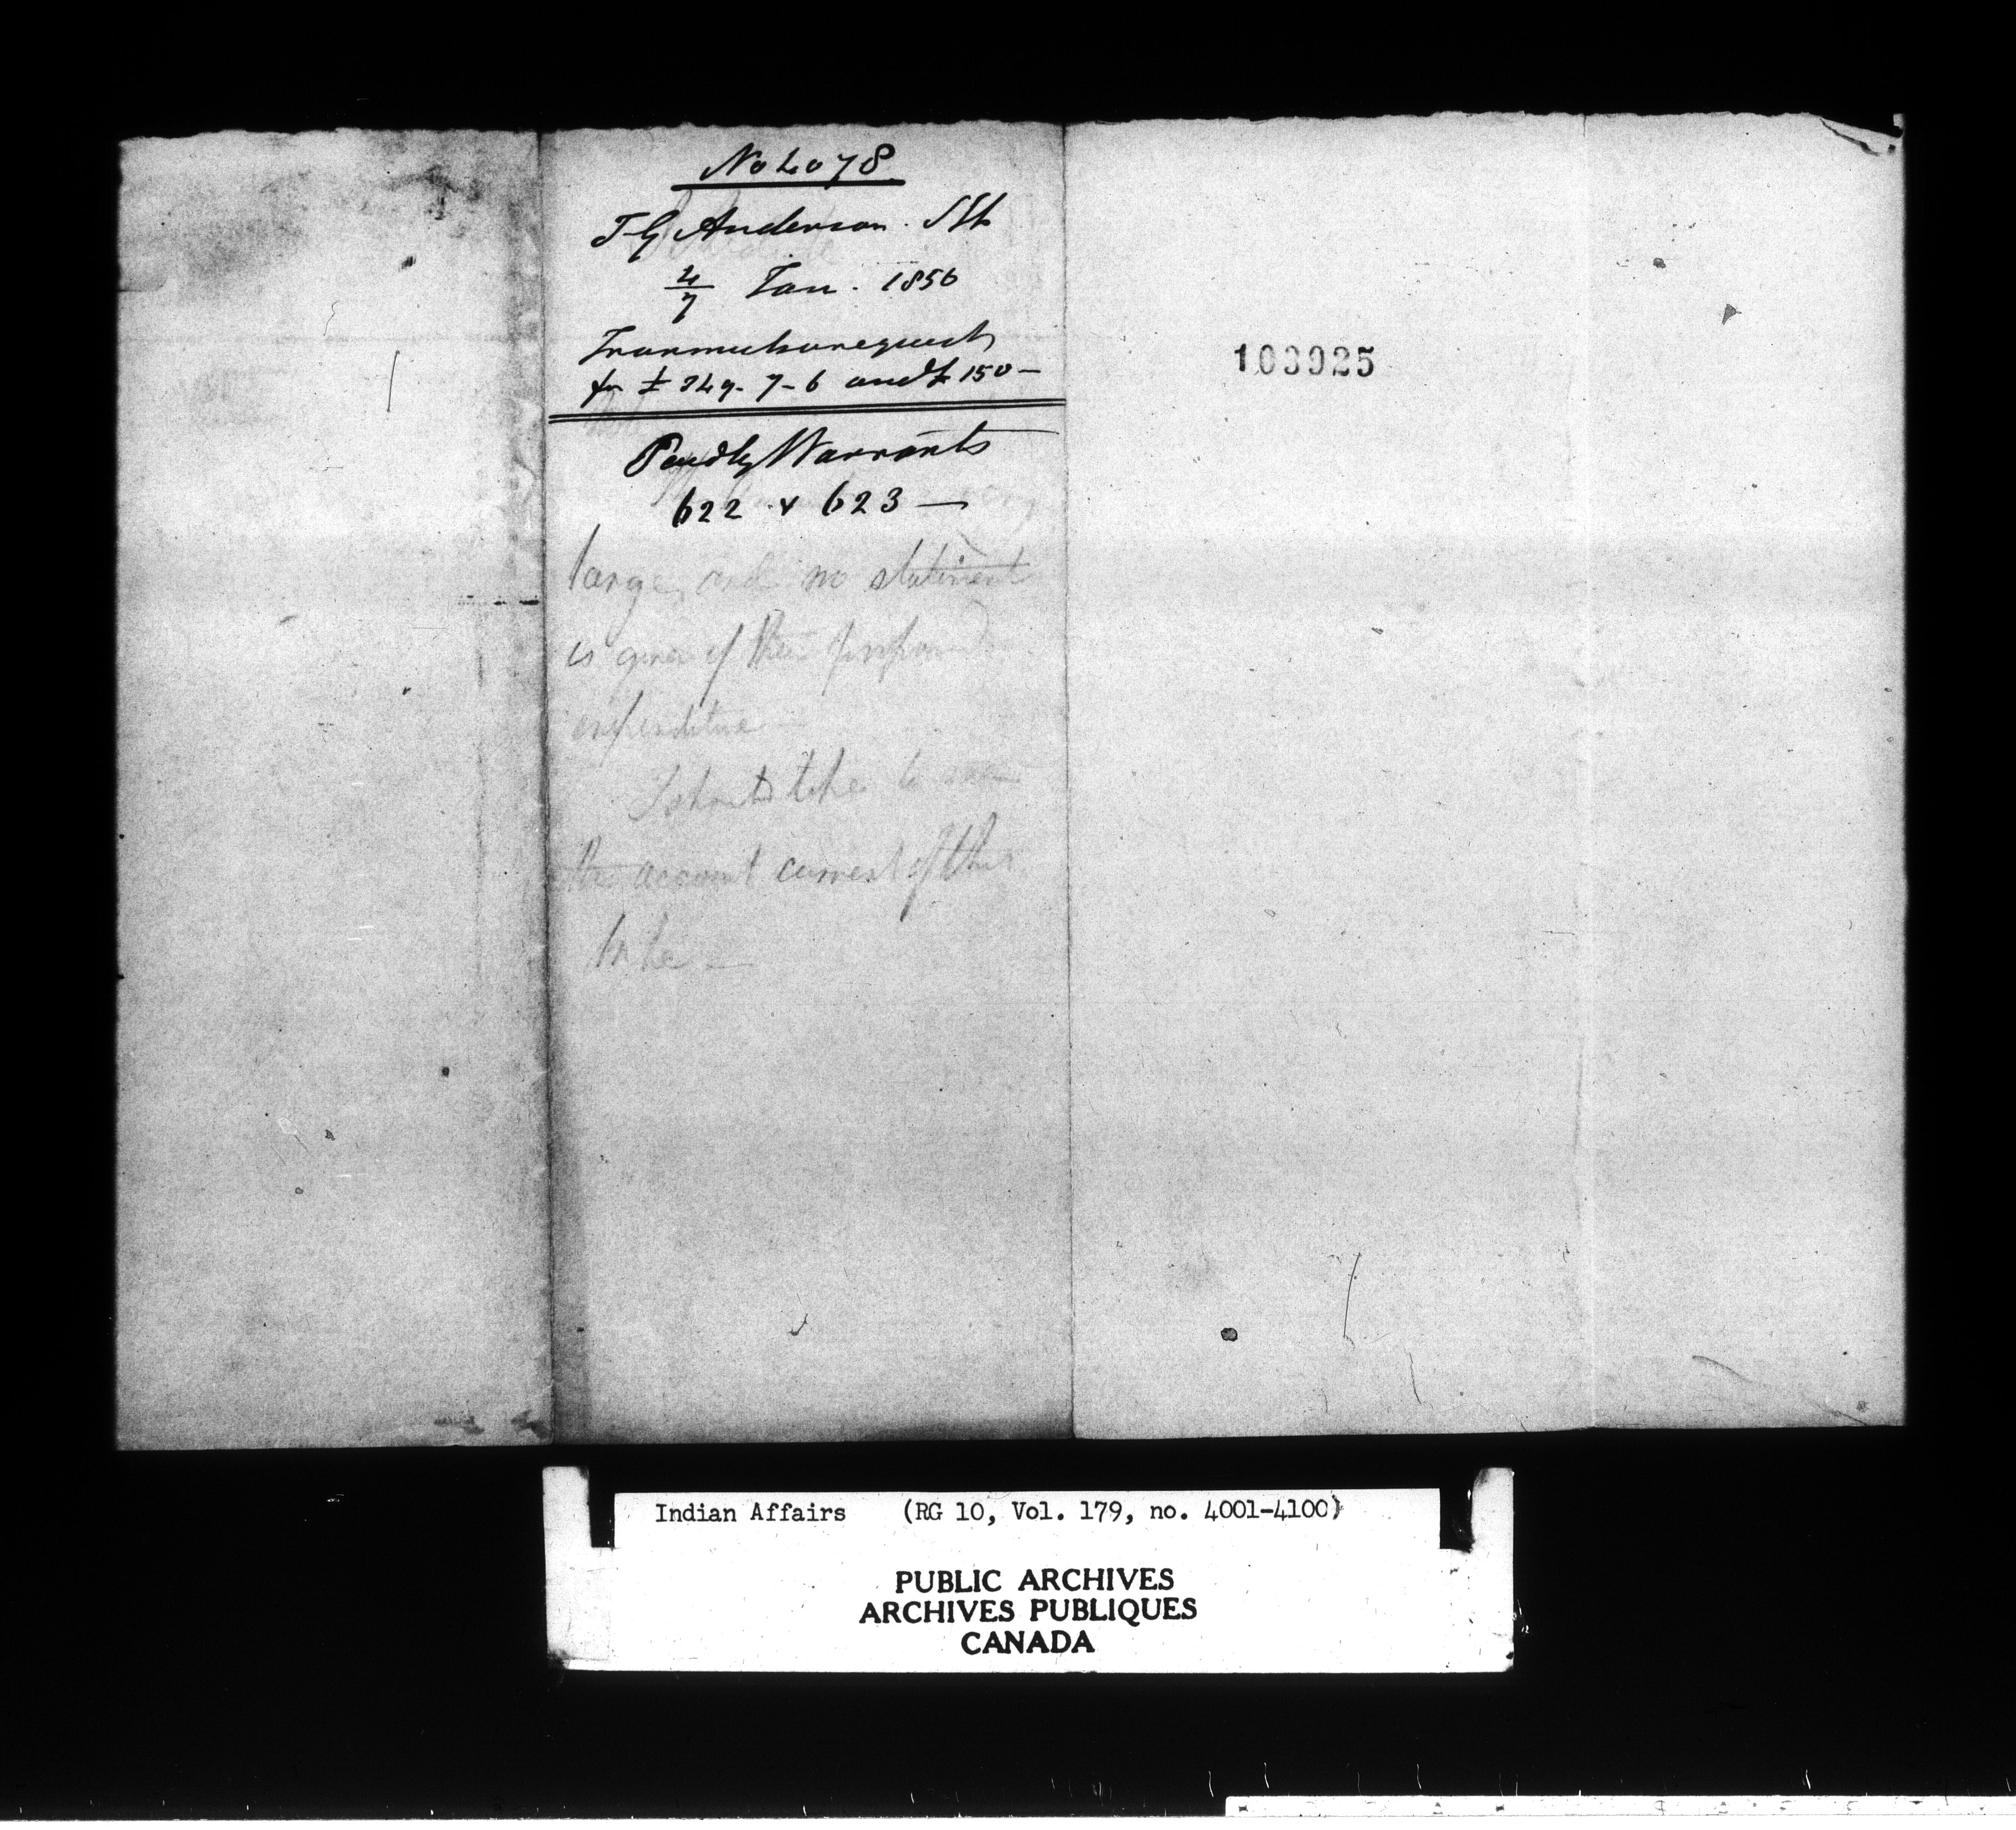 No 4078
T G Anderson. SIA
4/7 Jan. 1856
Transmits requests
for £ 349. 7-6 and £ 150-
Paid by Warrants
622 & 623 —
large, and no statement
is given of their proposed
expenditure —
I should like to see
the account current of this
tribe —
103925
Indian Affairs (RG 10, Vol. 179, no. 4001-4100)
PUBLIC ARCHIVES
ARCHIVES PUBLIQUES
CANADA